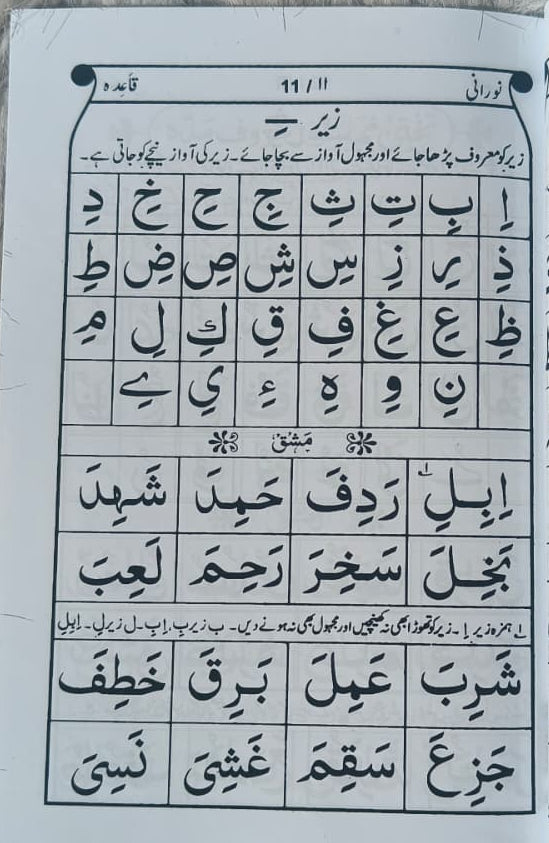 نورانی ۱۱ / 11 قاعدہ
زیر ــِـ
زیر کو معروف پڑھا جائے اور مجہول آواز سے بچا جائے۔ زیر کی آواز نیچے کو جاتی ہے۔
اِ بِ تِ ثِ جِ حِ خِ دِ
ذِ رِ زِ سِ شِ صِ ضِ طِ
ظِ عِ غِ فِ قِ كِ لِ مِ
نِ وِ هِ ءِ یِ ےِ
مشق
اِبِلِ ۱ رَدِفَ حَمِدَ شَهِدَ
بَخِلَ سَخِرَ رَحِمَ لَعِبَ
۱ ہمزہ زیر اِ۔ زیر کو تھوڑا بھی نہ کھینچیں اور مجہول بھی نہ ہونے دیں۔ ب زیر بِ، اِبِ۔ ل زیر لِ۔ اِبِلِ
شَرِبَ عَمِلَ بَرِقَ خَطِفَ
جَزِعَ سَقِمَ غَشِیَ نَسِیَ